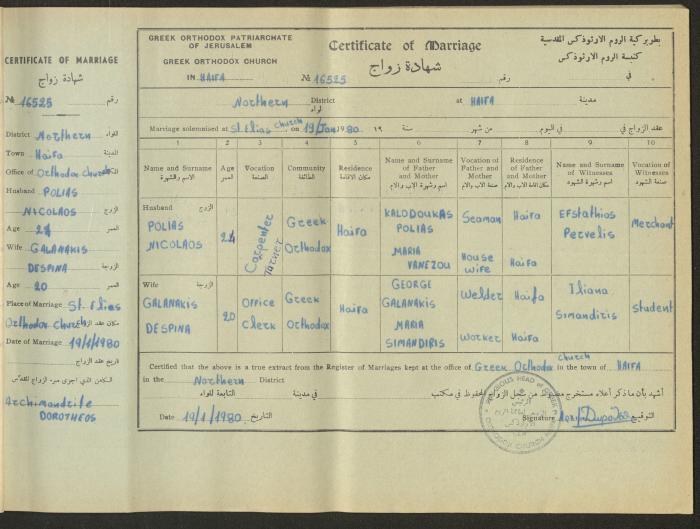 CERTIFICATE OF MARRIAGE
شهادة زواج
№ 16525 رقم
District Northern لواء
Town Haifa المدينة
Office of Orthodox Church
Husband POLIAS
NICOLAOS الزوج
Age 24 العمر
Wife GALANAKIS
DESPINA الزوجة
Age 20 العمر
Place of Marriage St. Elias
Orthodox Church مكان عقد الزواج
Date of Marriage 19/1/1980
تاريخ عقد الزواج
Archimandrite
DOROTHEOS
GREEK ORTHODOX PATRIARCHATE
OF JERUSALEM
GREEK ORTHODOX CHURCH
IN HAIFA
Certificate of Marriage
شهادة زواج
№ 16525 رقم
بطريركية الروم الارثوذكس المقدسية
كنيسة الروم الارثوذكس
في
Northern District لواء at HAIFA مدينة
Marriage solemnised at St. Elias Church on 19/Jan/1980. ١٩ سنة من شهر في اليوم عقد الزواج في
1 2 3 4 5 6 7 8 9 10
Name and Surname الاسم والشهرة
Age العمر
Vocation الصناعة
Community الطائفة
Residence مكان الاقامة
Name and Surname of Father and Mother اسم وشهرة الاب والام
Vocation of Father and Mother صنعة الاب والام
Residence of Father and Mother مكان اقامة الاب والام
Name and Surname of Witnesses اسم وشهرة الشهود
Vocation of Witnesses صنعة الشهود
Husband الزوج
POLIAS NICOLAOS
24
Carpenter Turner
Greek Orthodox
Haifa
KALODOUKAS POLIAS
MARIA VANEZOU
Seaman
House wife
Haifa
Haifa
Efstathios Pervelis
Merchant
Wife الزوجة
GALANAKIS DESPINA
20
Office Clerk
Greek Orthodox
Haifa
GEORGE GALANAKIS
MARIA SIMANDIRIS
Welder
Worker
Haifa
Haifa
Iliana Simandiris
Student
Certified that the above is a true extract from the Register of Marriages kept at the office of Greek Orthodox Church in the town of HAIFA
in the Northern District التابعة للواء في مدينة اشهد بأن ما ذكر أعلاه مستخرج مضبوط من سجل الزواج المحفوظ في مكتب
Date 19/1/1980 التاريخ Signature التوقيع